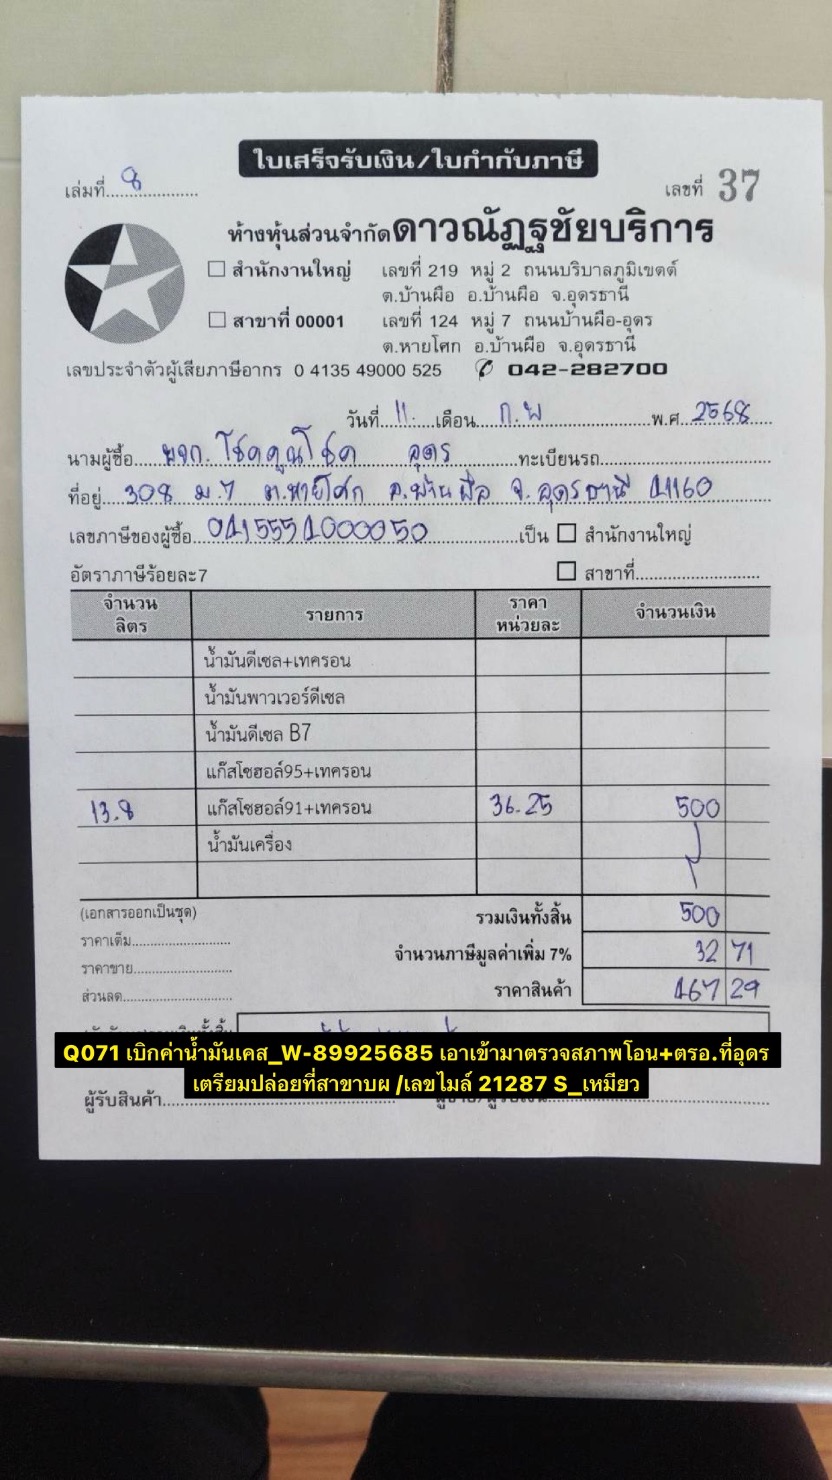 ใบเสร็จรับเงิน/ใบกำกับภาษี
เล่มที่ 8 เลขที่ 37
ห้างหุ้นส่วนจำกัดดาวณัฏฐชัยบริการ
สำนักงานใหญ่ เลขที่ 219 หมู่ 2 ถนนบริบาลภูมิเขตต์
ต.บ้านผือ อ.บ้านผือ จ.อุดรธานี
สาขาที่ 00001 เลขที่ 124 หมู่ 7 ถนนบ้านผือ-อุดร
ต.หายโศก อ.บ้านผือ จ.อุดรธานี
เลขประจำตัวผู้เสียภาษีอากร 0 4135 49000 525 042-282700
วันที่ 11 เดือน ก.พ พ.ศ. 2568
นามผู้ซื้อ หจก. โชคคูณโชค อุดร ทะเบียนรถ
ที่อยู่ 308 ม.7 ต.หายโศก อ.บ้านผือ จ.อุดรธานี 41160
เลขภาษีของผู้ซื้อ 0415554000050 เป็น สำนักงานใหญ่
อัตราภาษีร้อยละ7 สาขาที่
จำนวน ลิตร รายการ ราคา หน่วยละ จำนวนเงิน
น้ำมันดีเซล+เทครอน
น้ำมันพาวเวอร์ดีเซล
น้ำมันดีเซล B7
แก๊สโซฮอล์95+เทครอน
13.8 แก๊สโซฮอล์91+เทครอน 36.25 500
น้ำมันเครื่อง
(เอกสารออกเป็นชุด) รวมเงินทั้งสิ้น 500
ราคาเต็ม
จำนวนภาษีมูลค่าเพิ่ม 7% 32 71
ราคาขาย
ราคาสินค้า 467 29
ส่วนลด
Q071 เบิกค่าน้ำมันเคส_W-89925685 เอาเข้ามาตรวจสภาพโอน+ตรอ.ที่อุดร
เตรียมปล่อยที่สาขาบผ /เลขไมล์ 21287 S_เหมียว
ผู้รับสินค้า